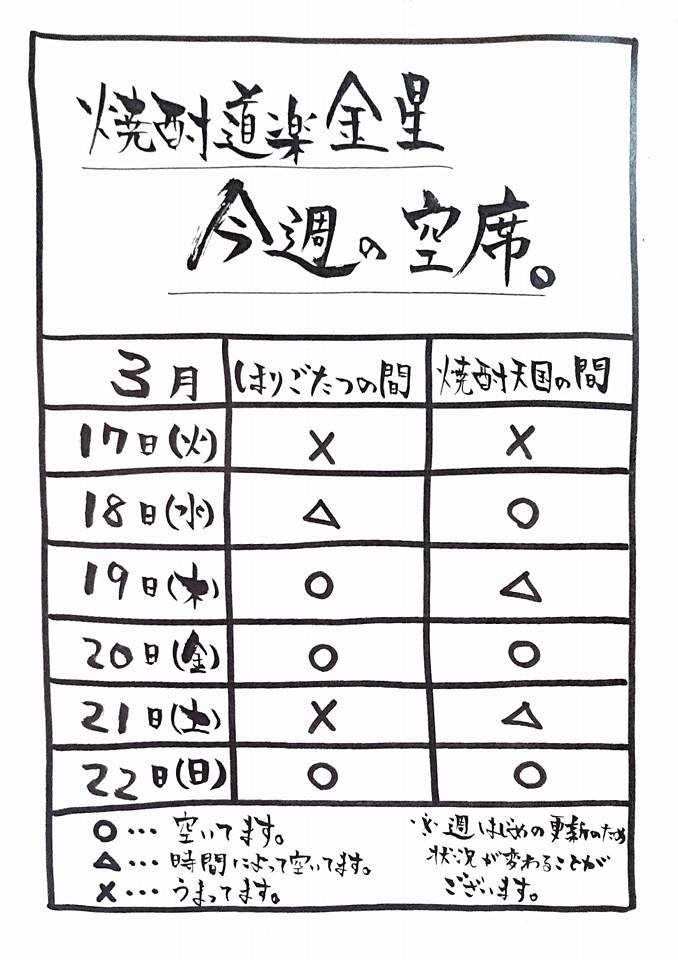 焼酎道楽金星
今週の空席。
3月 ほりごたつの間 焼酎天国の間
17日(火) × ×
18日(水) △ ○
19日(木) ○ △
20日(金) ○ ○
21日(土) × △
22日(日) ○ ○
○… 空いてます。
△… 時間によって空いてます。
×… うまってます。
※週はじめの更新のため
状況が変わることが
ございます。